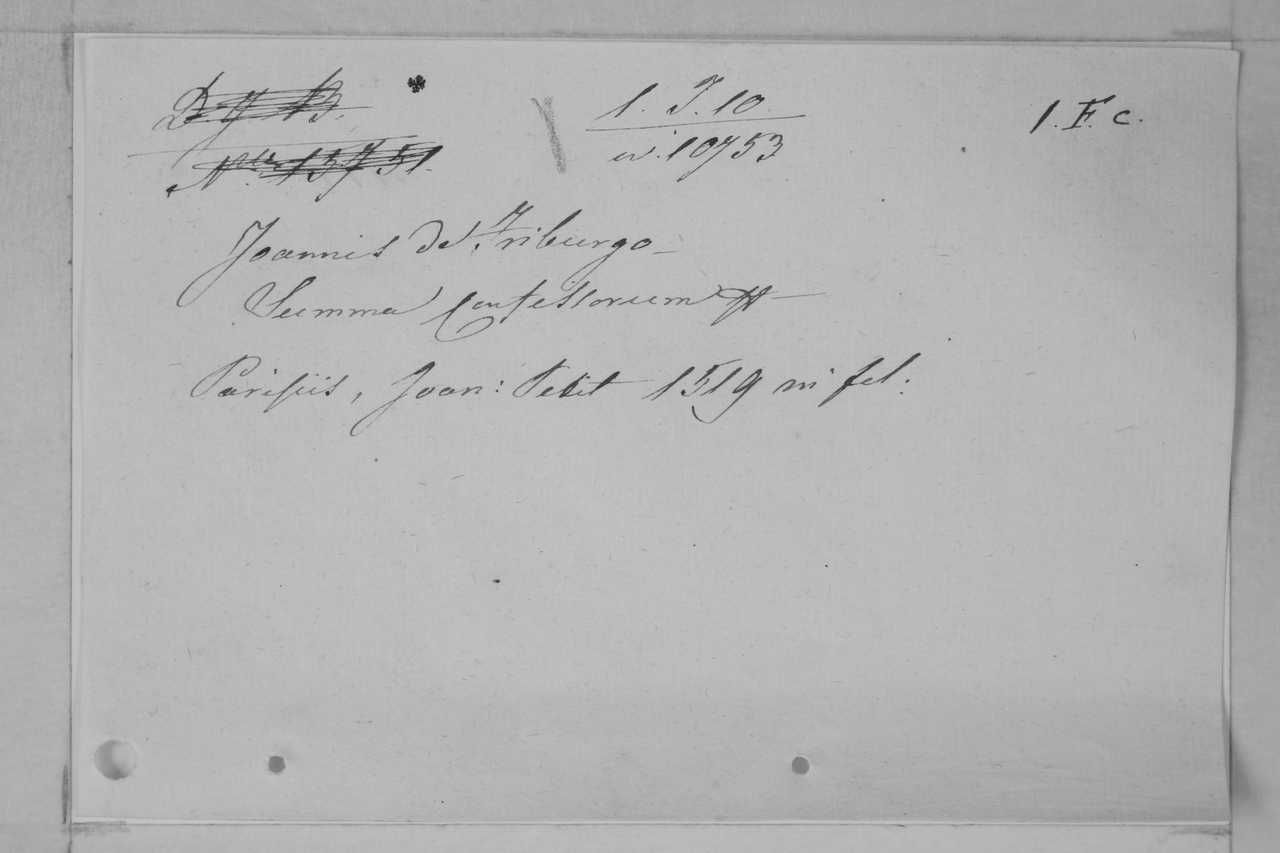 1. J. 10
1. F. c.
10753
Joannis de Friburgo
Summa Confessorum
Parisiis, Joan: Petit 1519 in fol.